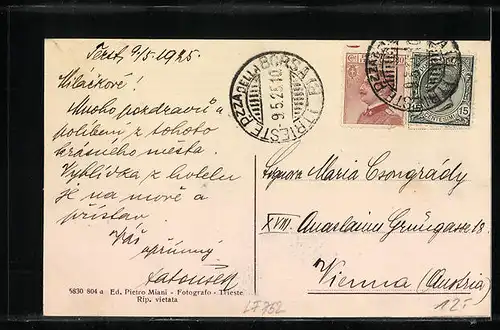 Terst, 9/5 1925.
Miláčkové!
Mnoho pozdravů a
políbení z tohoto
krásného města.
Vyhlídka z hotelu
je na moře a
přístav.
Váš
upřímný
TRIESTE P.ZZA DELLA BORSA
9.5.25.10
15
Signora Maria Csongrády
XVIII.
Vienna (Austria)
5830 804 a Ed. Pietro Miani - Fotografo - Trieste
Rip. vietata
12.-